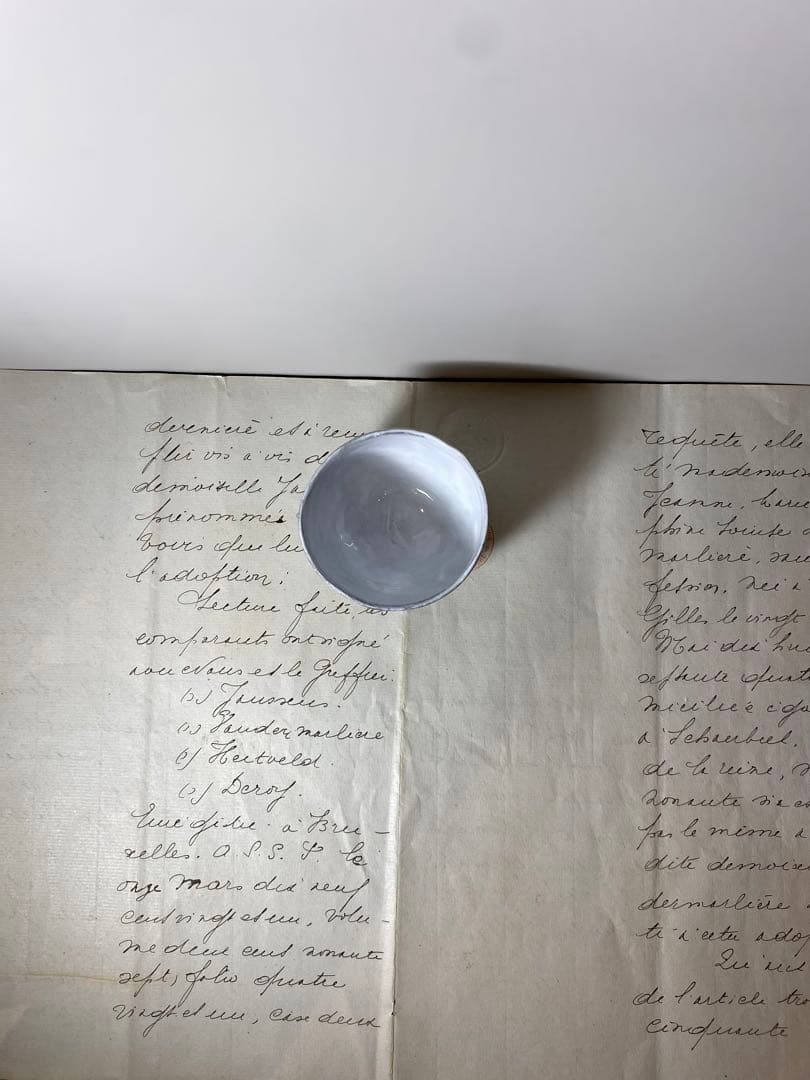 dernière et à rem
plir vis à vis d
demoiselle Ja
prénommé
Vovis que lu
l'adoption:
Lecture faite, les
comparants ont signé
avec Nous et le Greffier:
(s) Janssens.
(s) Vandermarlière
(s) Hertveld.
(s) Deroy.
Enregistré à Bru-
xelles. A. S. S. P. le
onze Mars dix neuf
cent vingt et un, volu-
me deux cent nonante
sept, folio quatre
vingt et un, case deux
requête, elle
té mademois
Jeanne, Marie
phine Louise
marlière, san
fession, née à
Gilles le vingt
Mai dix huit
septante quat
miciliée
à Schaerbeek,
de la reine,
nonante six
par le même
dite demois
dermarlière
té à cette adop
Qu'aux
de l'article tro
cinquante